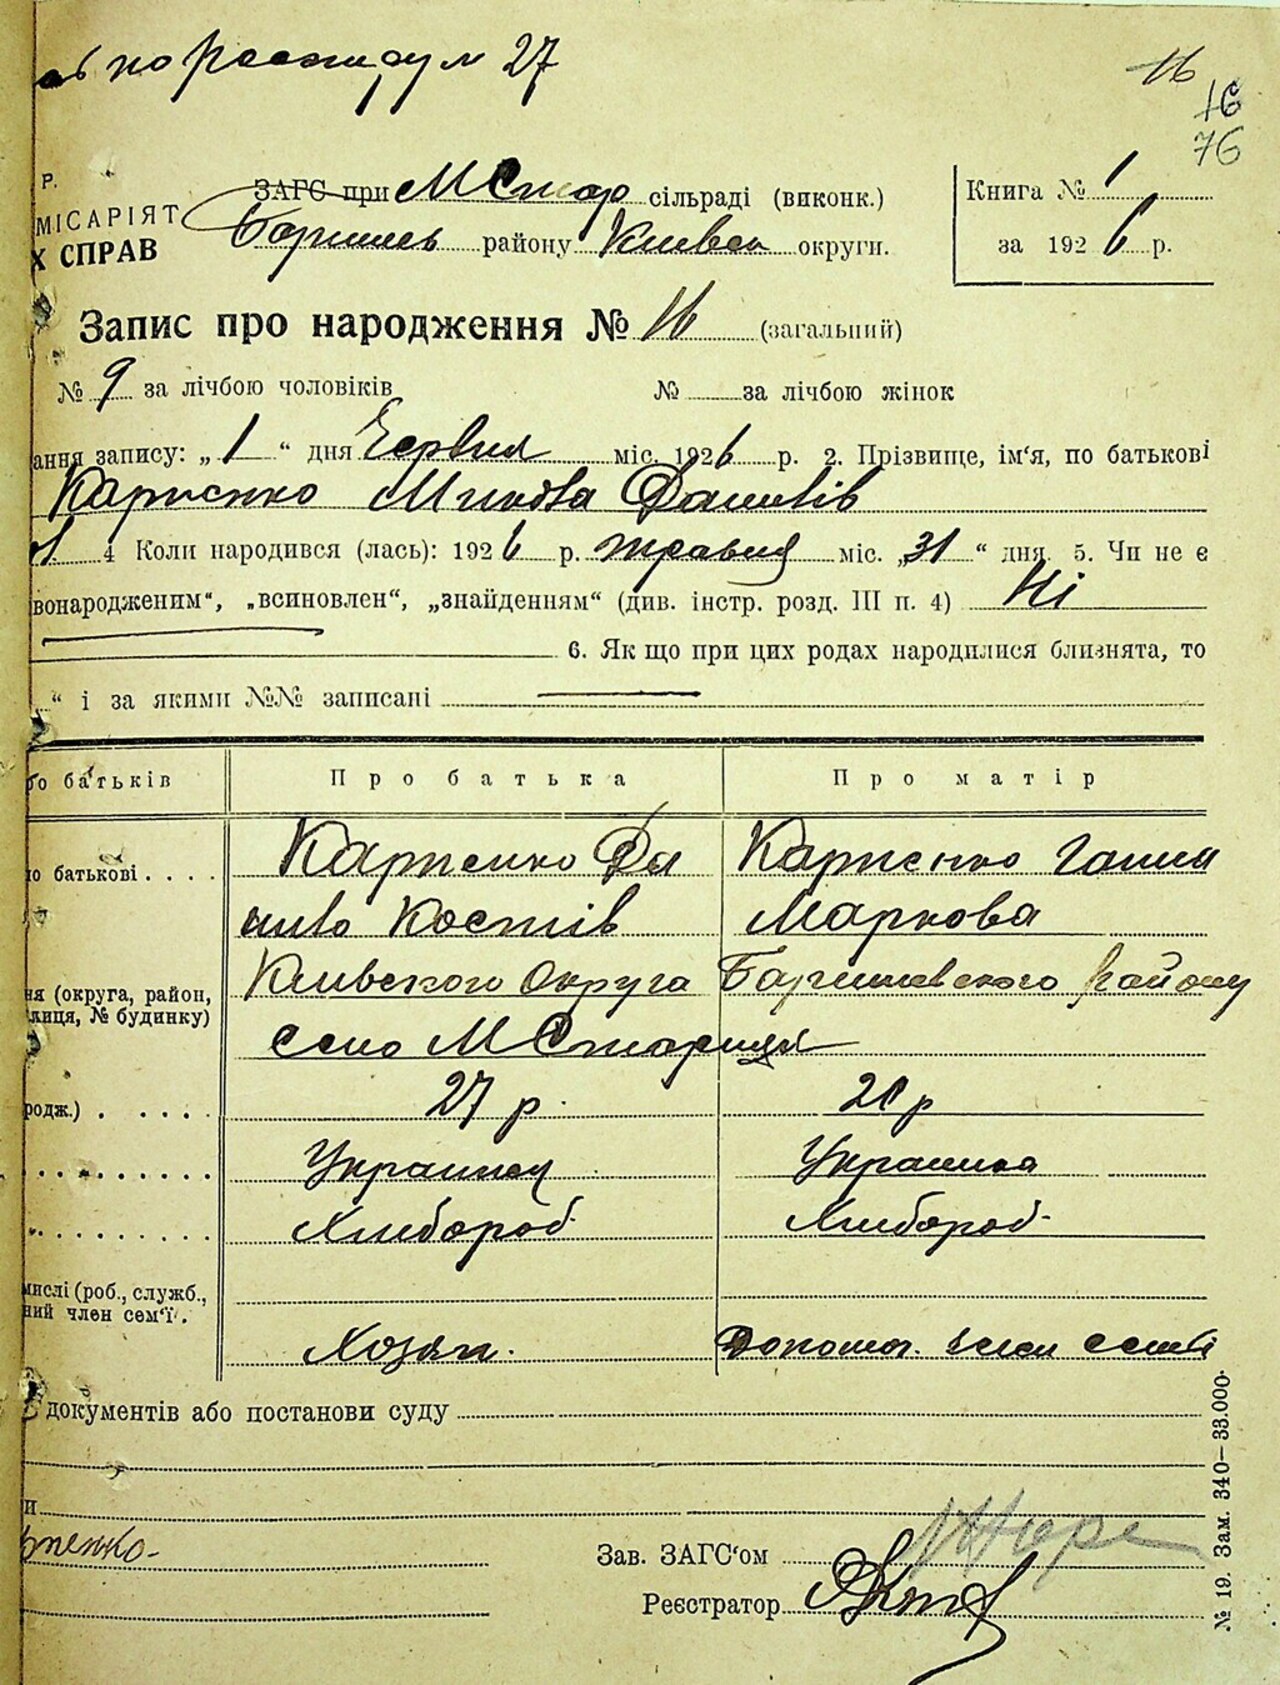 по 27
16
16
76
Р.
МІСАРІЯТ
Х СПРАВ
ЗАГС при МСтар сільраді (виконк.)
Баришев району Киівск округи.
Книга № 1
за 1926 р.
Запис про народження № 16 (загальний)
№ 9 за лічбою чоловіків № за лічбою жінок
ання запису: „ 1 “ дня Червня міс. 1926 р. 2. Прізвище, ім'я, по батькові
Карпенко Микола Данилів
4 Коли народився (лась): 1926 р. травня міс. „31“ дня. 5. Чи не є
вонародженим“, „всиновлен“, „знайденням“ (див. інстр. розд. III п. 4) Ні
6. Як що при цих родах народилися близнята, то
“ і за якими №№ записані
ро батьків Про батька Про матір
по батькові . . . . Карпенко Да Карпенко Ганна
нило Костів Маркова
ня (округа, район, Киівского Округа Баришевского району
лиця, № будинку)
село МСтариця
родж.) . . . . . 27 р. р
Украинец Украинка
Хлибороб Хлибороб
мислі (роб., служб.,
ний член сем'ї.
Хозяін. Допомог. член семьі
документів або постанови суду
и
рпенко
Зав. ЗАГС'ом
Реєстратор
№ 19. Зам. 340—33.000.